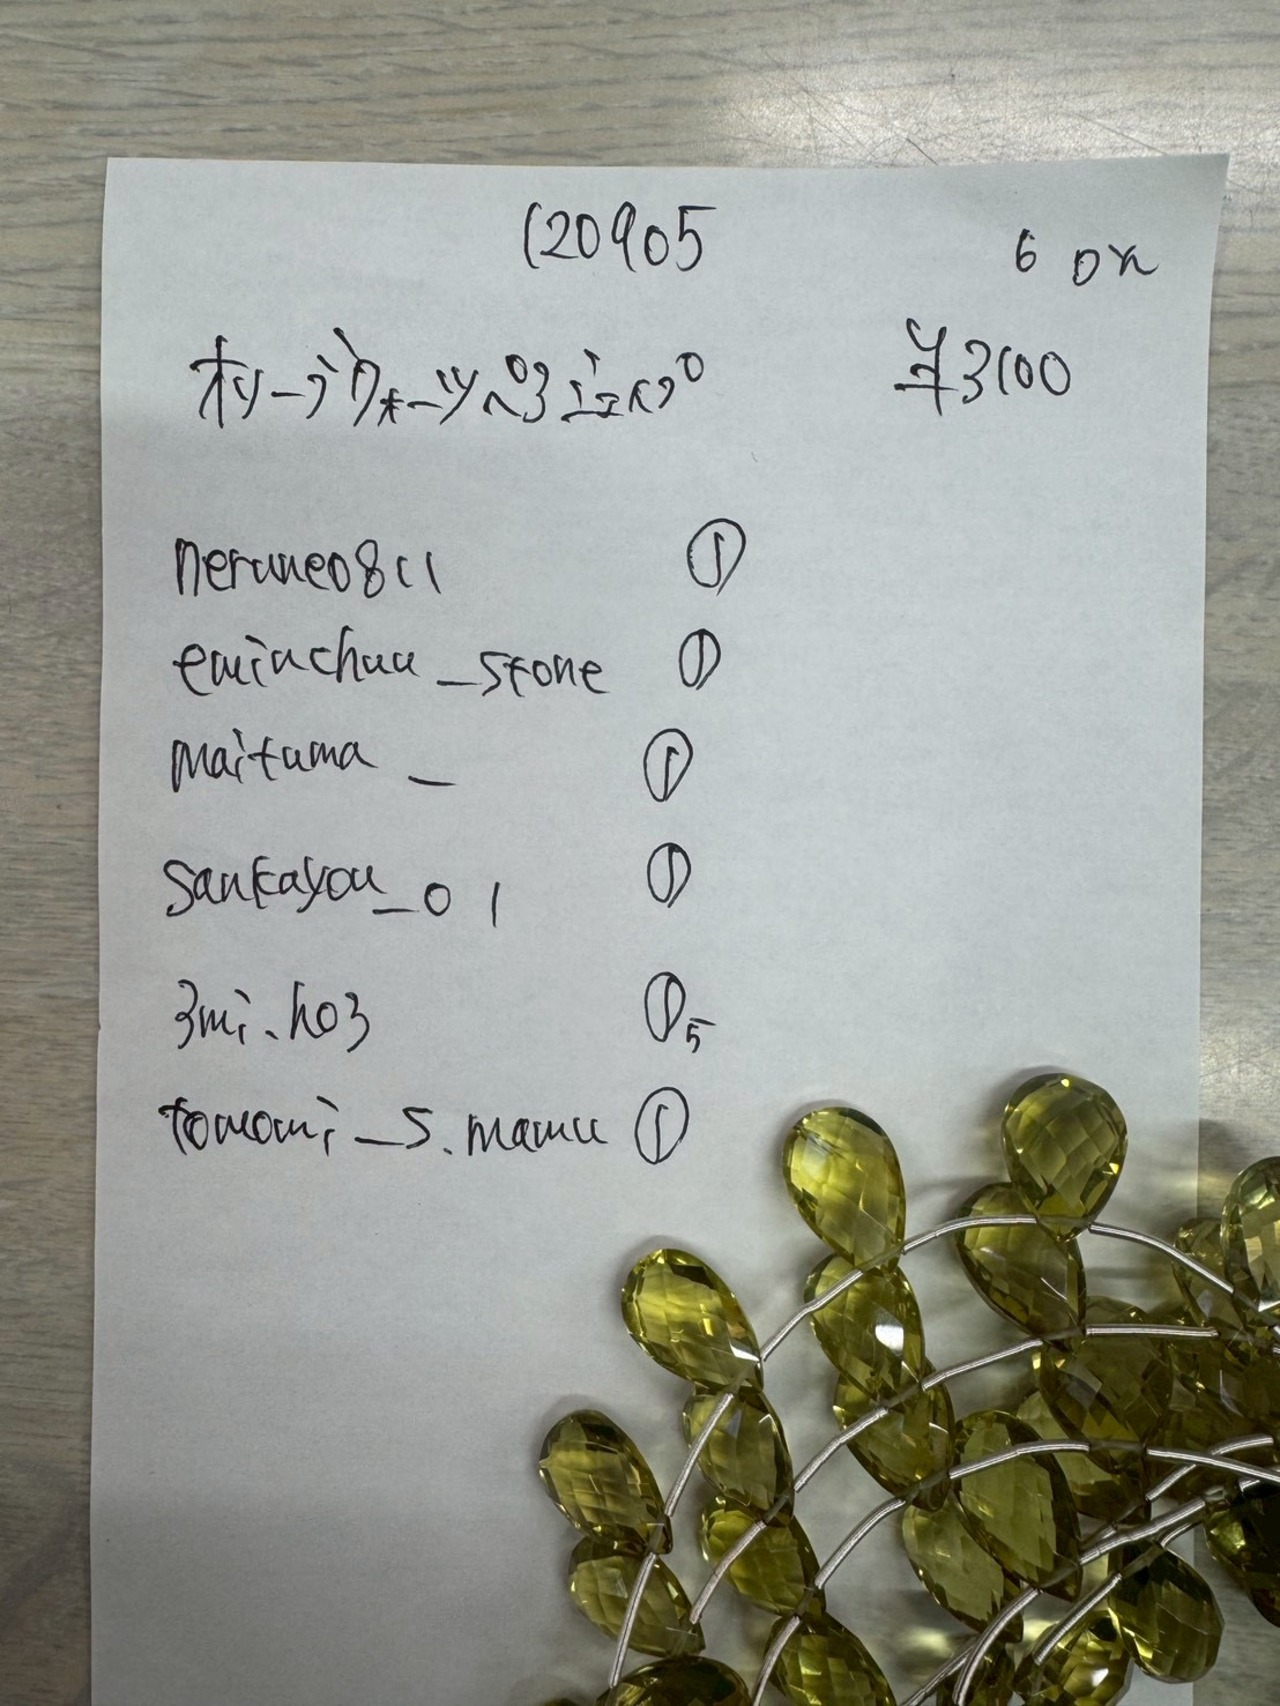 120905
6 on
オリーブクォーツペアシェイプ ¥3100
nerune0811 ①
eminchuu_stone ①
maituma_ ①
sankayou_01 ①
3mi.ho3 ①5
tomomi_s.mamu ①